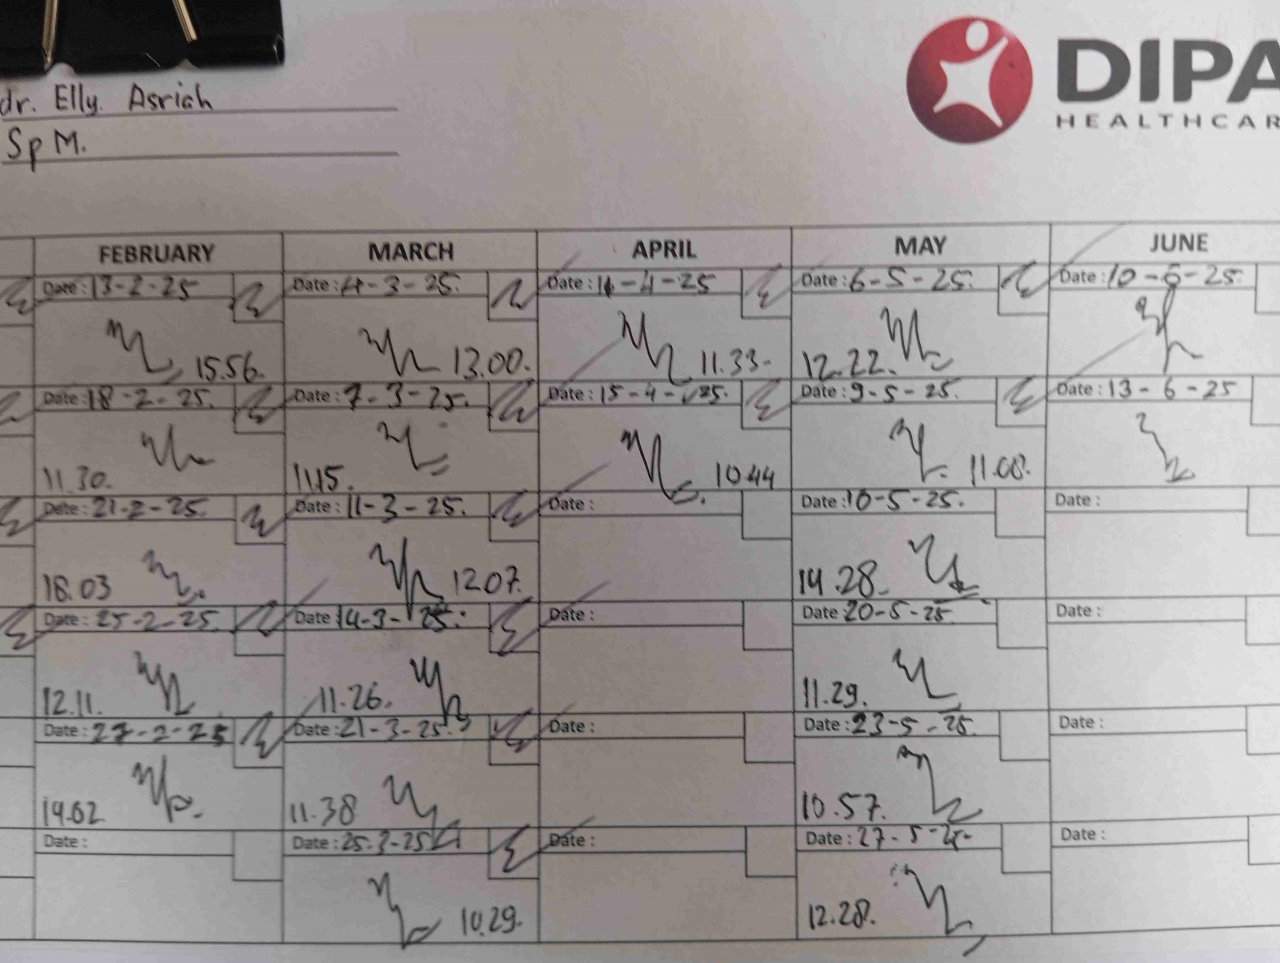 dr. Elly Asriah
Sp M.
DIPA
HEALTHCAR
FEBRUARY MARCH APRIL MAY JUNE
Date : 13-2-25 Date : 4-3-25. Date : 11-4-25 Date : 6-5-25. Date : 10-6-25.
15.56. 13.00. 11.33- 12.22.
Date : 18-2-25. Date : 7-3-25. Date : 15-4-25. Date : 9-5-25. Date : 13-6-25
11.30. 11.15. 10.44 11.08.
Date : 21-2-25. Date : 11-3-25. Date : Date : 10-5-25. Date :
18.03 12.07. 14.28.
Date : 25-2-25. Date 14-3-25. Date : Date 20-5-25. Date :
12.11. 11.26. 11.29.
Date : 27-2-25 Date : 21-3-25. Date : Date : 23-5-25. Date :
14.02 11.38 10.57.
Date : Date : 25.3-25 Date : Date : 27-5-25- Date :
10.29. 12.28.